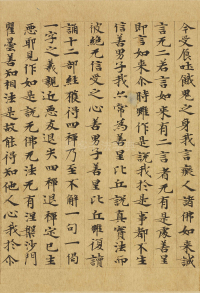 今受吐之身我言癡人諸佛如來誠
言无二若如來有二言者无有是處善星
即言如來尒時雖作是說我於是事都不生
信善男子我亦常為善星比丘說真實法而
彼絕无信受之心善男子善星比丘雖復讀
誦十二部經獲得四禪乃至不解一句一偈
一字之義親近惡友退失四禪退禪定已生
惡耶見作如是說无佛无法无有涅槃沙門
瞿曇善知相法是故能得知他人心我於尒